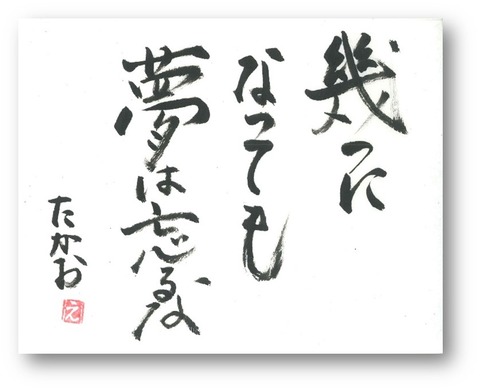 幾つに
なっても
夢は忘るな
たかお
え